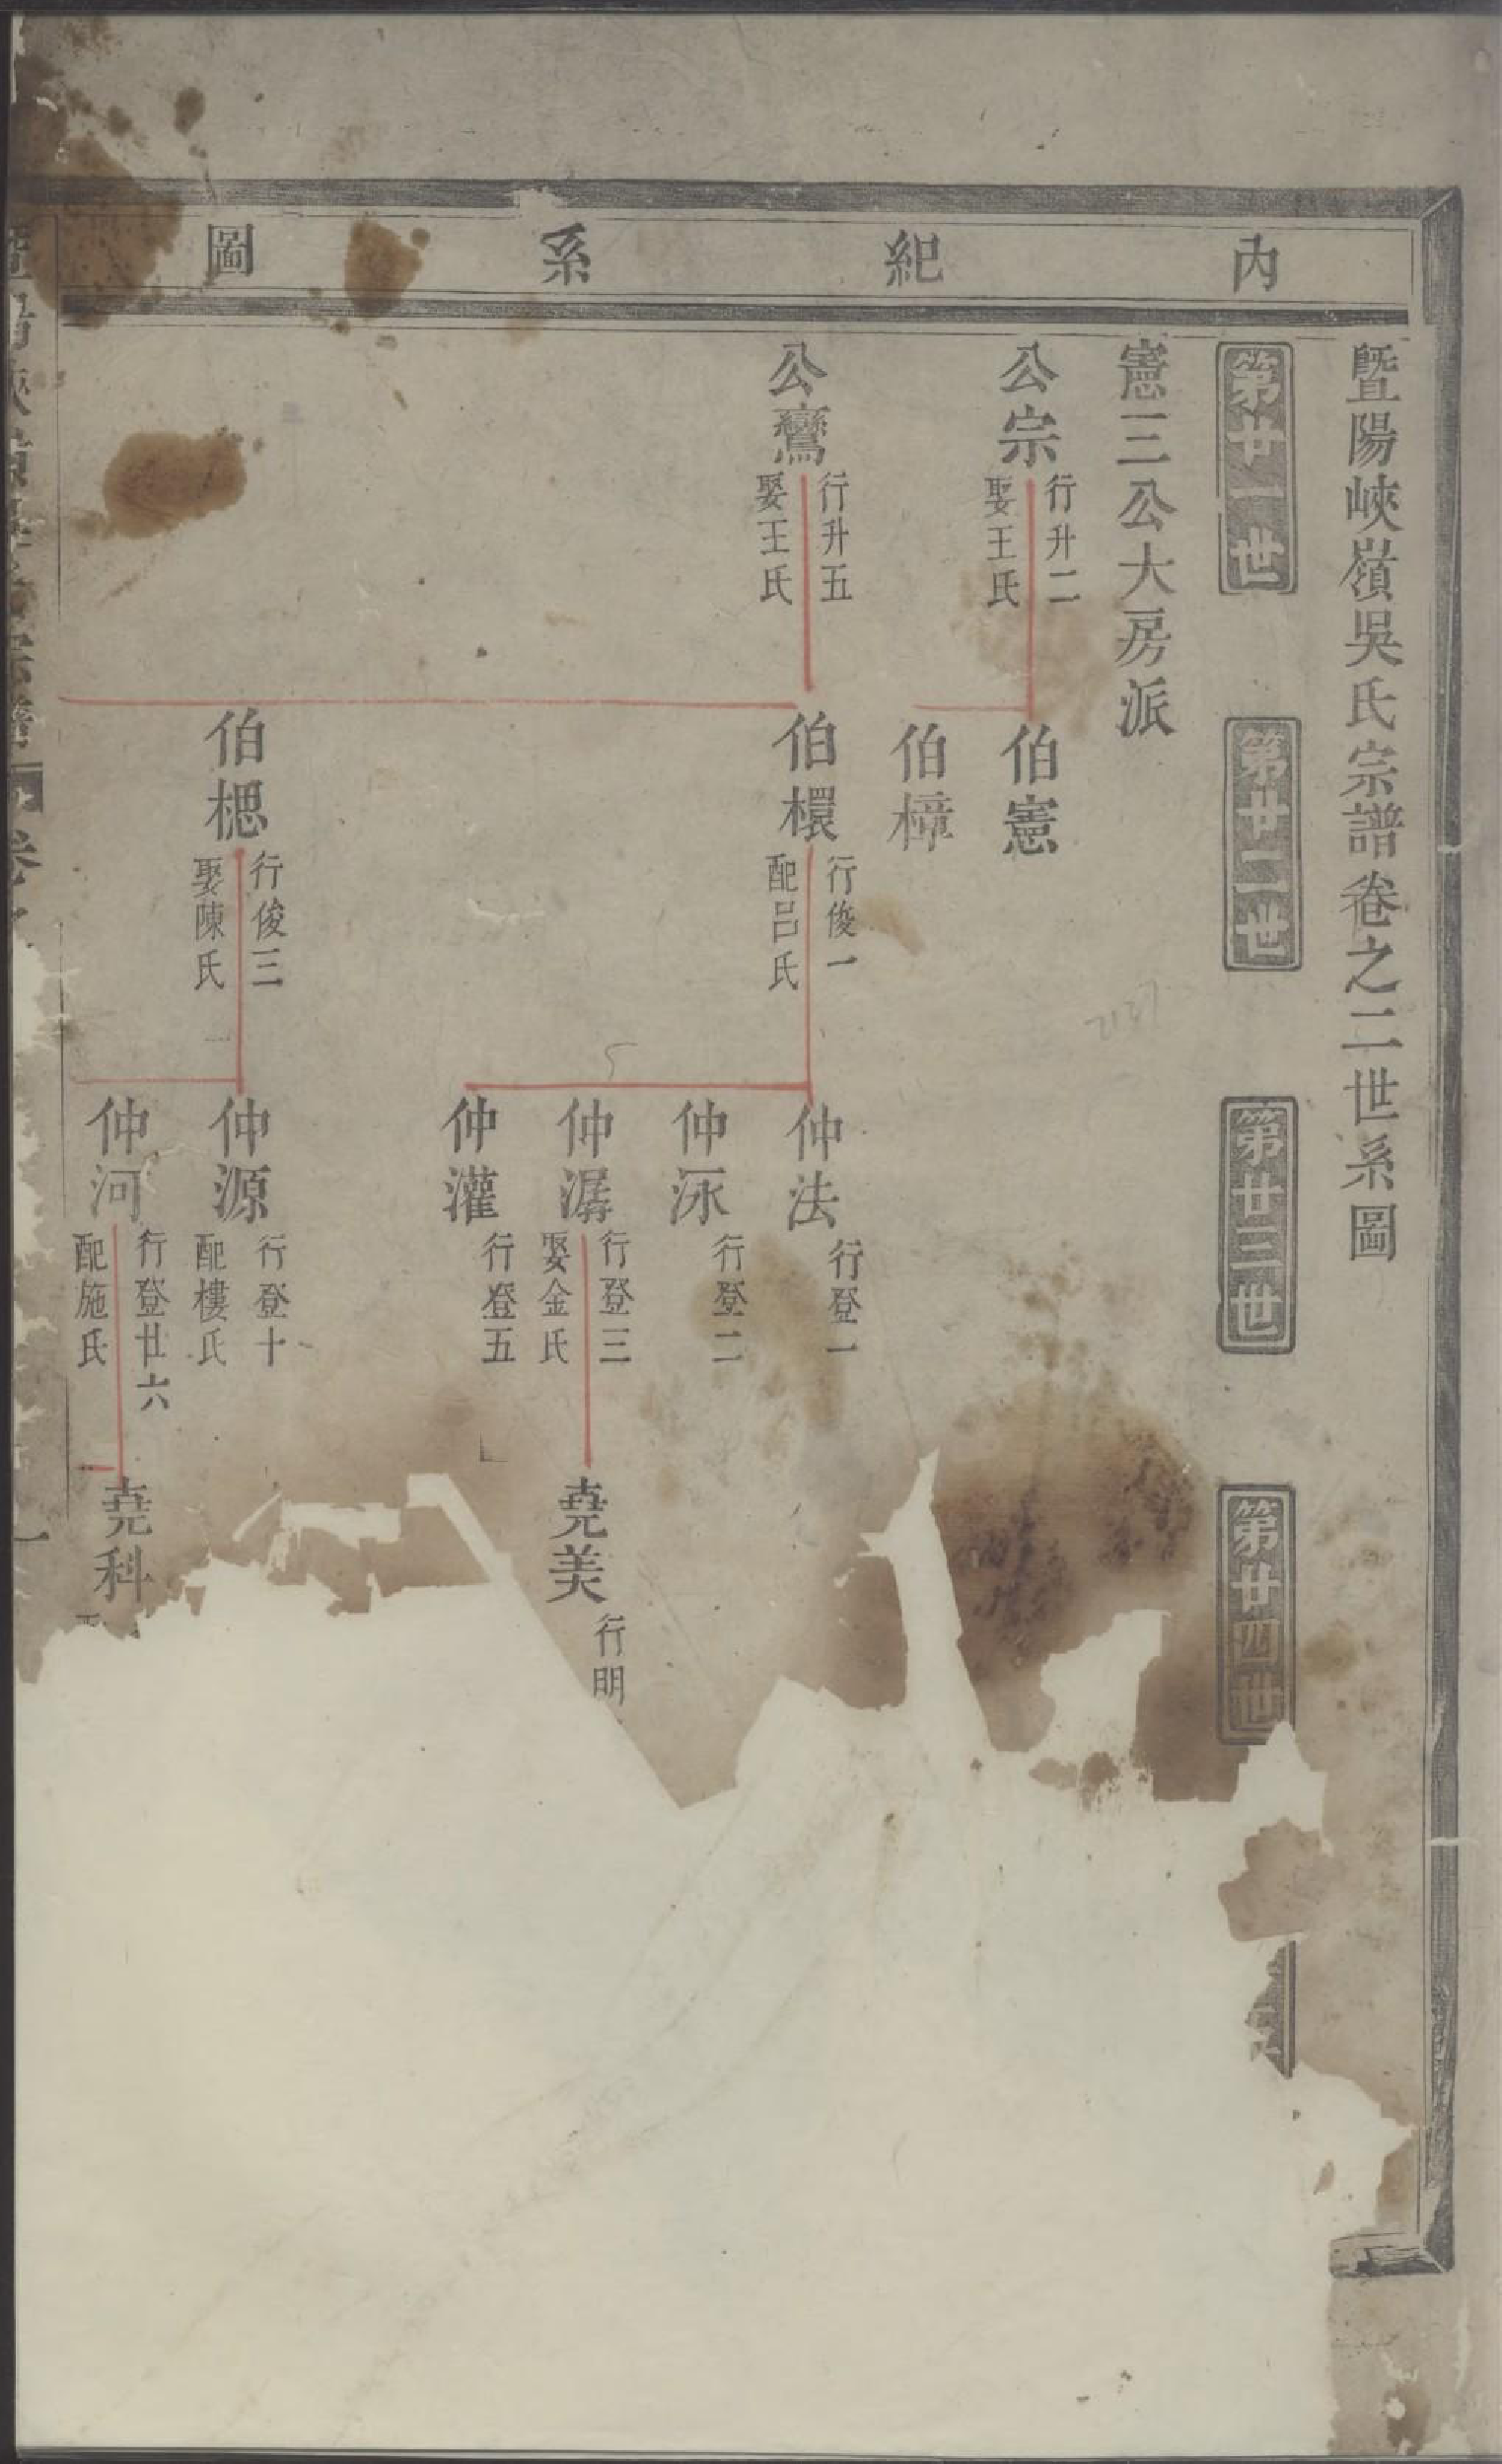 內紀系圖
暨陽峽嶺吳氏宗譜卷之二世系圖
第廿一世
第廿二世
第廿三世
第廿四世
憲三公大房派
公宗
行升二
娶王氏
伯憲
伯樟
公鸞
行升五
娶王氏
伯檈
行俊一
配呂氏
仲法
行登一
仲泳
行登二
仲潺
行登三
娶金氏
堯美
行明
仲灌
行登五
伯楒
行俊三
娶陳氏
仲源
行登十
配樓氏
仲河
行登廿六
配施氏
堯科